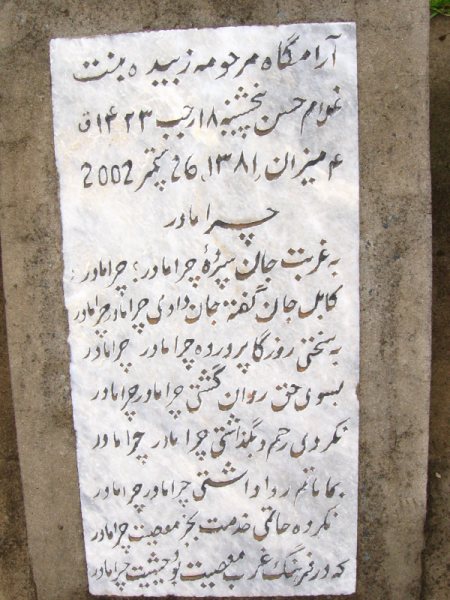 آرامگاه مرحومه زبیده بنت
غلام حسن پنجشنبه ۱۸ رجب ۱۴۲۳ ق
۴ میزان ۱۳۸۱، 26 ستمبر 2002
چرا مادر
به غربت جان سپردهٔ چرا مادر؟ چرا مادر
کابل جان گفته جان دادی چرا مادر چرا مادر
به سختی روزگا پرورده چرا مادر چرا مادر
بسوی حق روان گشتی چرا مادر چرا مادر
نکردی رحم و بگذاشتی چرا مادر چرا مادر
بما ماتم روا داشتی چرا مادر چرا مادر
نکرده حاتمی خدمت بجز معصیت چرا مادر
که در فرهنگ غرب معصیت بود حیثیت چرا مادر